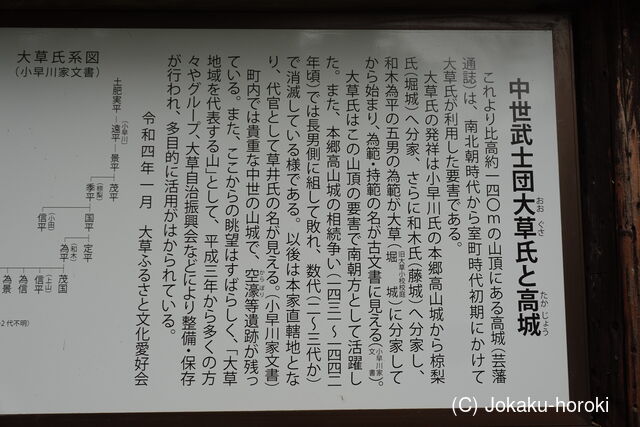 中世武士団大草氏と高城
おお ぐさ
たか じょう
これより比高約一四〇mの山頂にある高城(芸藩
通誌)は、南北朝時代から室町時代初期にかけて
大草氏が利用した要害である。
大草氏の発祥は小早川氏の本郷高山城から椋梨
氏(堀城)へ分家、さらに和木氏(藤城)へ分家し、
和木為平の五男の為範が大草(堀 城)に分家して
旧大草小校校庭
から始まり、為範・持範の名が古文書に見える(小早川家文書)。
大草氏はこの山頂の要害で南朝方として活躍し
た。また、本郷高山城の相続争い(一四三一~一四四二
年頃)では長男側に組して敗れ、数代(二~三代か)
で消滅している様である。以後は本家直轄地とな
り、代官として草井氏の名が見える。(小早川家文書)
町内では貴重な中世の山城で、空濠等遺跡が残っ
からぼり
ている。また、ここからの眺望はすばらしく、「大草
地域を代表する山」として、平成三年から多くの方
々やグループ、大草自治振興会などにより整備・保存
が行われ、多目的に活用がはかられている。
令和四年一月 大草ふるさと文化愛好会
大草氏系図
(小早川家文書)
土肥実平―遠平―景平―茂平
(小早川)
季平―国平―定平
(椋梨)
信平
(小田)
為平―茂国
(和木)
信平
(上山)
為信
為景
2代不明)
(C) Jokaku-horoki